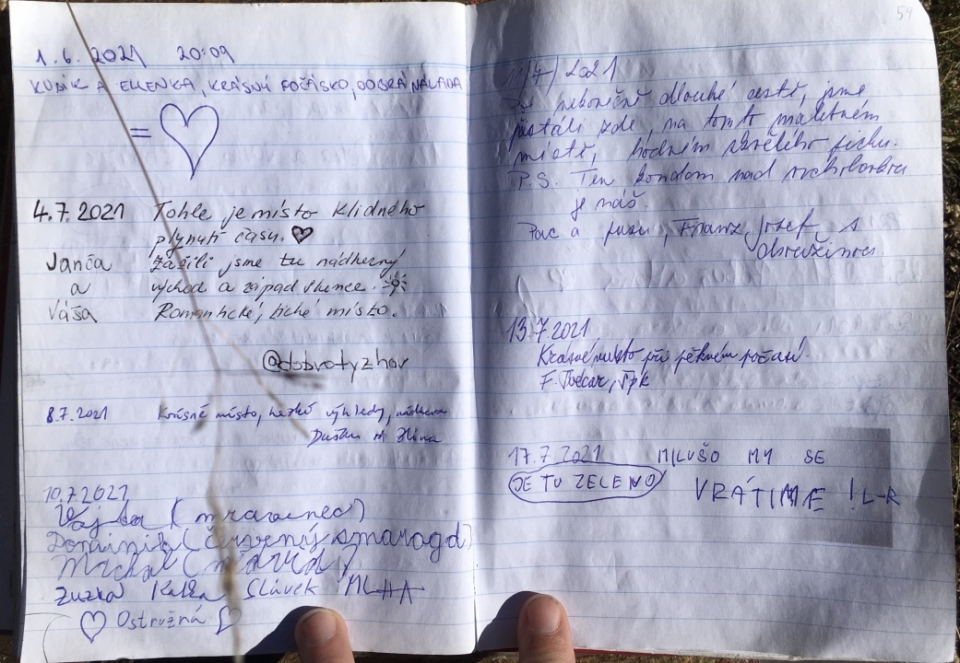 1. 6. 2021 20:09
KUBÍK A ELLENKA, KRÁSNÉ POČÁSKO, DOBRÁ NÁLADA
=
4.7.2021 Tohle je místo klidného
plynutí času.
Janča zažili jsme tu nádherný
a východ a západ slunce.
Váša Romantické, tiché místo.
@dobrotyzhor
8.7.2021 Krásné místo, hezké výhledy, nádhera
10.7.2021
Vojta (mravenec)
Dominik (černý smaragd)
Michal
Zuzka Katka Slávek
Ostružná
54
2021
Po nekonečně dlouhé cestě, jsme
přistáli zde, na tomto malebném
místě, hodném skvělého
P.S. Ten kondom nad
je náš.
Pac a pusu, Franz Josef s
13.7.2021
Krásné místo při pěkném počasí.
17.7.2021 MILUŠO MY SE
JE TU ZELENO VRÁTÍME ! L-R